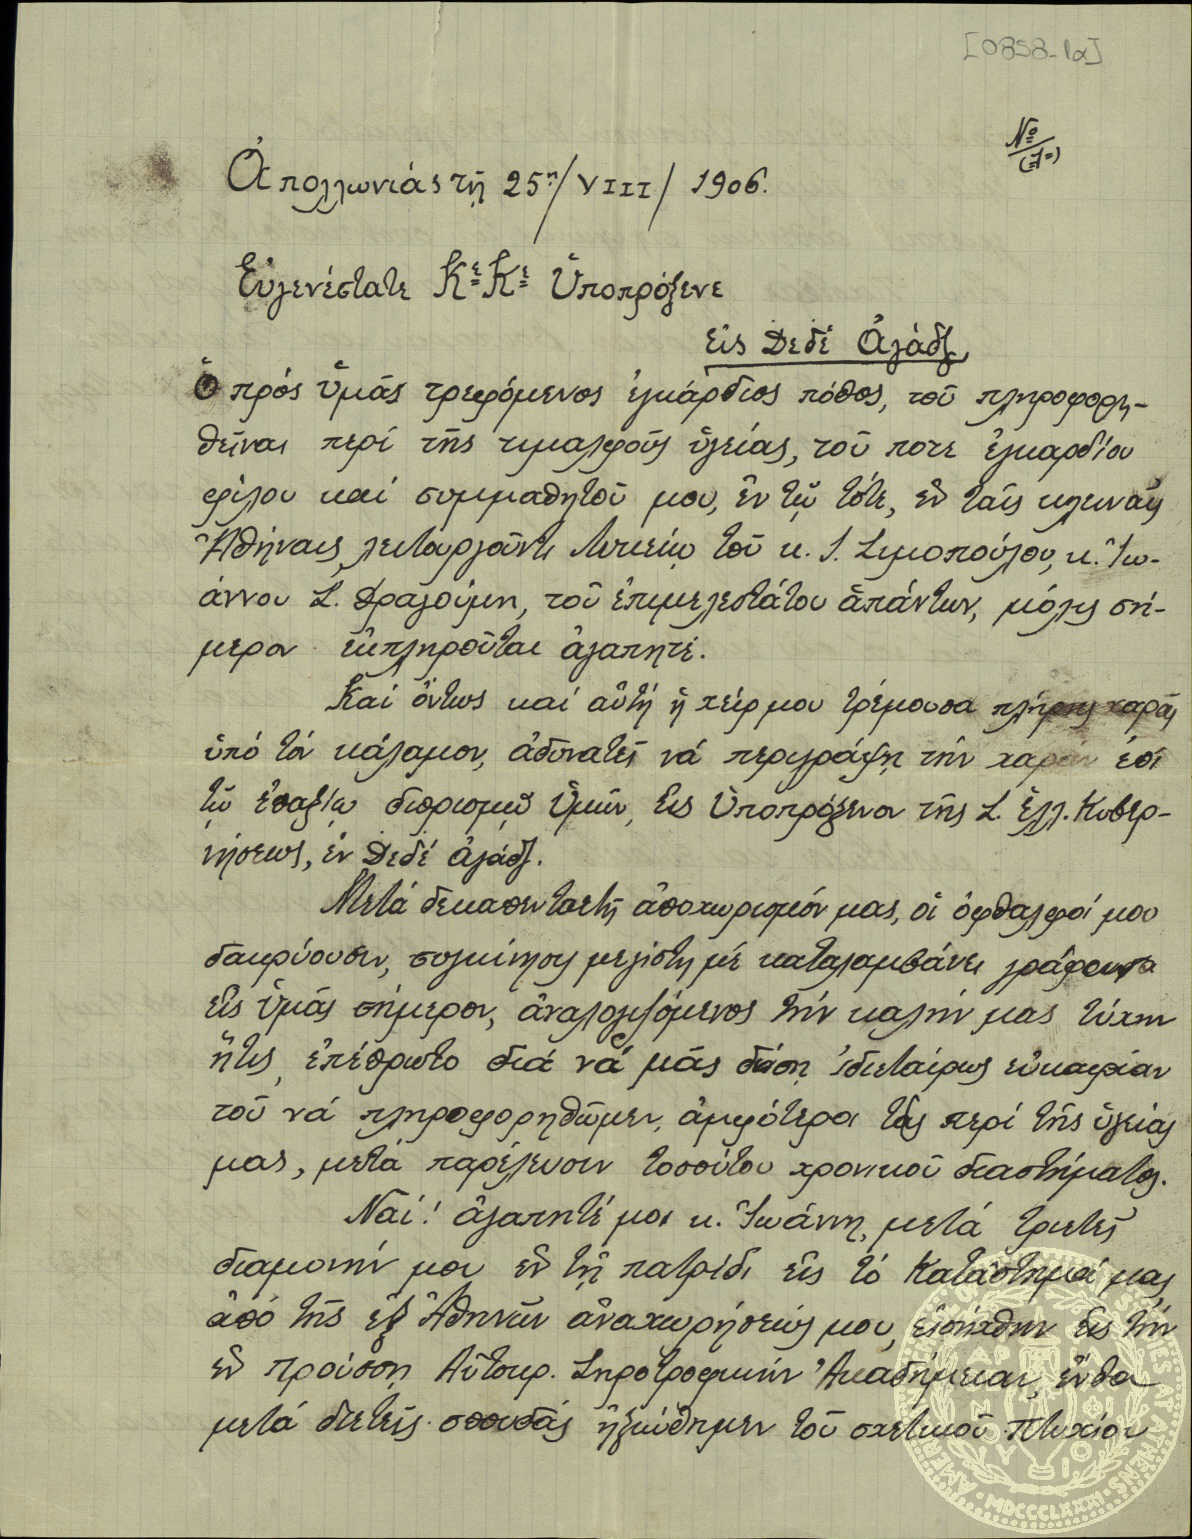 [0858-1α]
Nº
(=1=)
Ἀπολλωνιάς τῇ 25ῃ/VIII/1906.
Εὐγενέστατε Κε Κε Ὑποπρόξενε
εἰς Δεδέ Ἀγάτζ
Ὁ πρός ὑμᾶς τρεφόμενος ἐγκάρδιος πόθος, τοῦ πληροφορη-
θεῖναι περί τῆς τιμαλφοῦς ὑγείας, τοῦ ποτε ἐγκαρδίου
φίλου καί συμμαθητοῦ μου, ἐν τῷ τότε, ἐν ταῖς κλειναῖς
Ἀθήναις λειτουργοῦντι Λυκείῳ τοῦ κ. Ι. Σιμοπούλου, κ. Ἰω-
άννου Σ. Δραγούμη, τοῦ ἐπιμελεστάτου ἁπάντων, μόλις σή-
μερον ἐκπληροῦται ἀγαπητέ.
Καί ὄντως καί αὐτή ἡ χείρ μου τρέμουσα πλήρης χαρᾶς
ὑπό τόν κάλαμον, ἀδυνατεῖ νά περιγράψῃ τήν χαράν ἐπί
τῷ ἐπαξίῳ διορισμῷ Ὑμῶν, Εἰς Ὑποπρόξενον τῆς Σ. Ἑλλ. Κυβερ-
νήσεως, ἐν Δεδέ Ἀγάτζ.
Μετά δεκαπενταετῆ ἀποχωρισμόν μας, οἱ ὀφθαλμοί μου
δακρύουσιν, συγκίνησις μεγίστη μέ καταλαμβάνει γράφοντα
εἰς ὑμᾶς σήμερον, ἀναλογιζόμενος τήν καλήν μας τύχην
ἥτις ἐπέπρωτο διά νά μᾶς δώσῃ ἰδιεταίρως εὐκαιρίαν
τοῦ νά πληροφορηθῶμεν ἀμφότεροι τά περί τῆς ὑγείας
μας, μετά παρέλευσιν τοσούτου χρονικοῦ διαστήματος.
Ναί! ἀγαπητέ μοι κ. Ἰωάννη, μετά τριετῆ
διαμονήν μου ἐν τῇ πατρίδι εἰς τό Κατάστημά μας
ἀπό τῆς ἐξ Ἀθηνῶν ἀναχωρήσεώς μου, εἰσήχθην εἰς τήν
ἐν Προύσσῃ Αὐτοκρ. Σηροτροφικήν Ἀκαδημίαν, ἔνθα
μετά διετεῖς σπουδάς ἠξιώθημεν τοῦ σχετικοῦ Πτυχίου